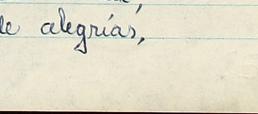 de alegrías,